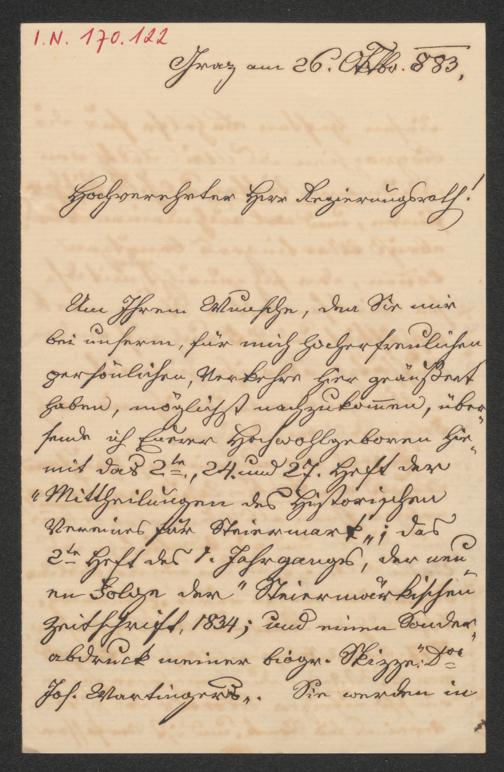 I.N. 170.122
Graz am 26. Oktbr. 883,
Hochverehrter Herr Regierungsrath!
Um Ihrem Wunsche, den Sie mir
bei unserm, für mich hocherfreulichen
persönlichen, Verkehre hier geäußert
haben, möglichst nachzukom̅en, über
sende ich Euerer Hochwohlgeboren hie
mit das 2te, 24. und 27. Heft der
"Mittheilungen des Historischen
Vereines für Steiermark"; das
2te Heft des 1. Jahrganges, der neu
en Folge der "Steiermärkischen
Zeitschrift, 1834; und einen Sonder
abdruck meiner biogr. Skizze: "Dor
Jos. Wartingers". Sie werden in